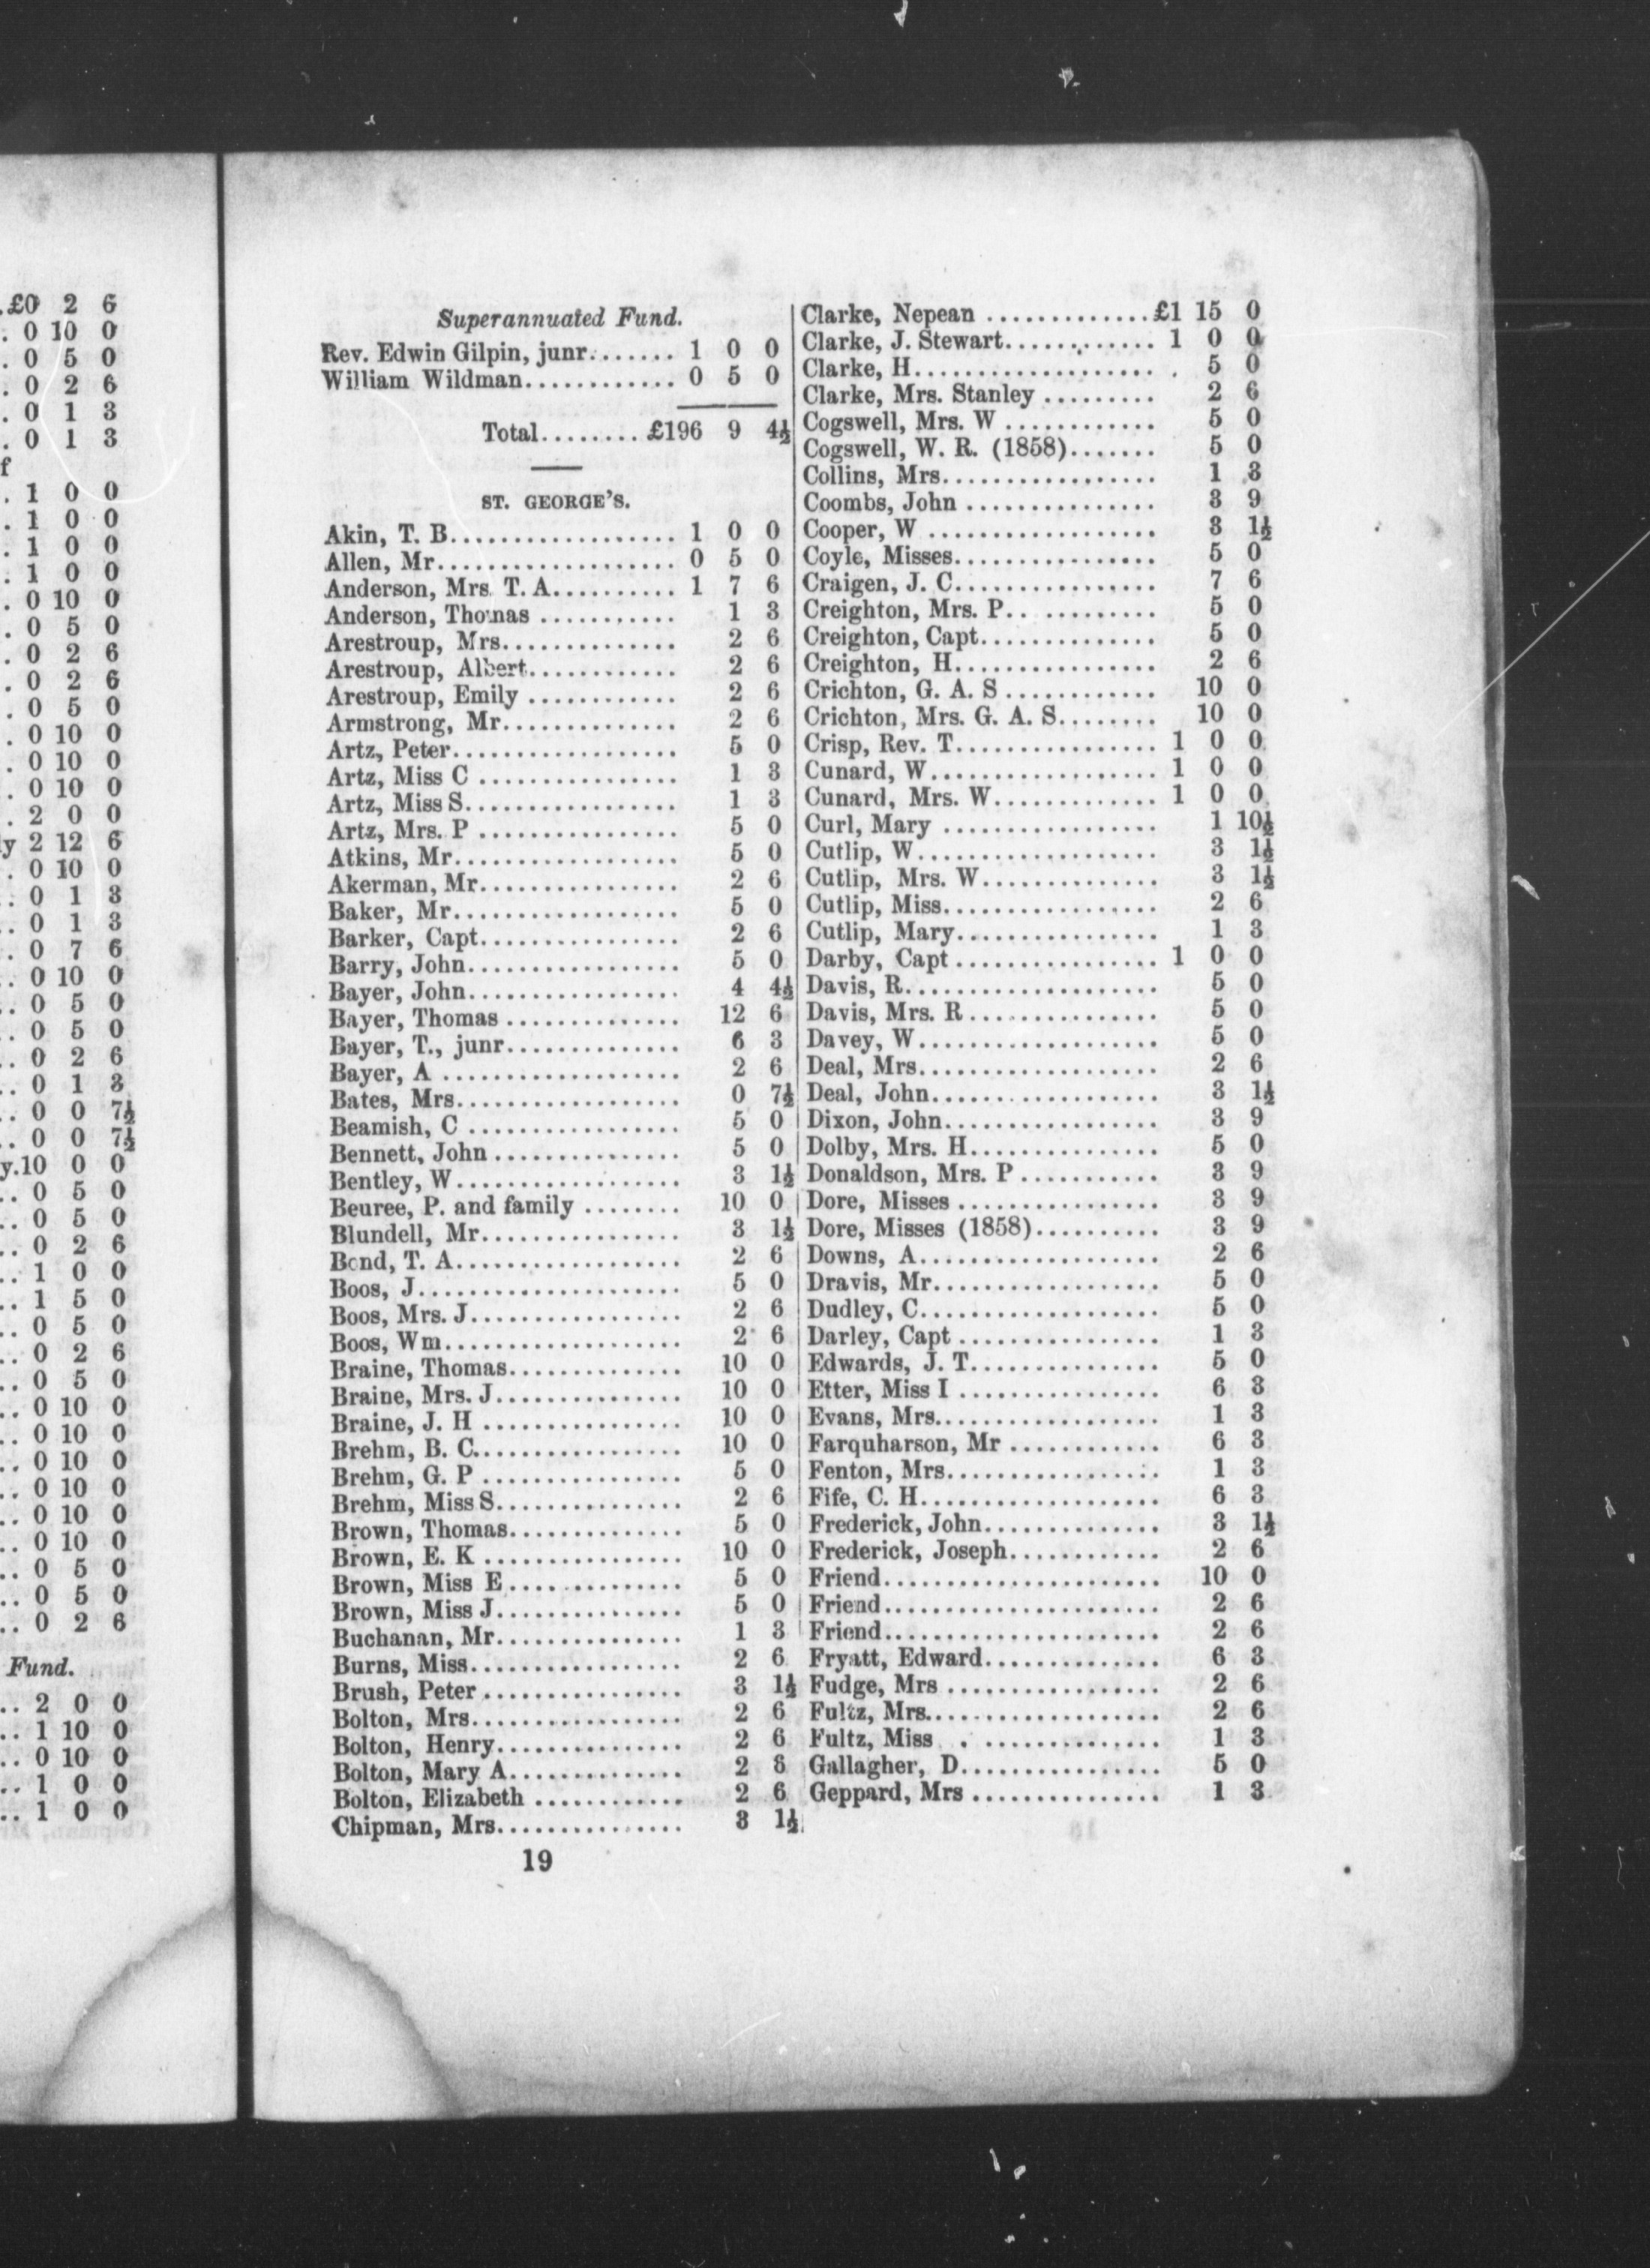 .£0 2 6
. 0 10 0
. 0 5 0
. 0 2 6
. 0 1 3
. 0 1 3
f
. 1 0 0
. 1 0 0
. 1 0 0
. 1 0 0
. 0 10 0
. 0 5 0
. 0 2 6
. 0 2 6
. 0 5 0
. 0 10 0
. 0 10 0
. 0 10 0
. 2 0 0
y 2 12 6
. 0 10 0
.. 0 1 3
.. 0 1 3
.. 0 7 6
.. 0 10 0
.. 0 5 0
.. 0 5 0
.. 0 2 6
.. 0 1 3
.. 0 0 7½
.. 0 0 7½
y.10 0 0
.. 0 5 0
.. 0 5 0
.. 0 2 6
.. 1 0 0
.. 1 5 0
.. 0 5 0
.. 0 2 6
.. 0 5 0
.. 0 10 0
.. 0 10 0
.. 0 10 0
.. 0 10 0
.. 0 10 0
.. 0 10 0
.. 0 5 0
.. 0 5 0
.. 0 2 6
Fund.
.. 2 0 0
.. 1 10 0
.. 0 10 0
.. 1 0 0
.. 1 0 0
Superannuated Fund.
Rev. Edwin Gilpin, junr....... 1 0 0
William Wildman............ 0 5 0
Total........£196 9 4½
ST. GEORGE'S.
Akin, T. B.................. 1 0 0
Allen, Mr................... 0 5 0
Anderson, Mrs. T. A.......... 1 7 6
Anderson, Thomas ........... 1 3
Arestroup, Mrs.............. 2 6
Arestroup, Albert............ 2 6
Arestroup, Emily ............ 2 6
Armstrong, Mr.............. 2 6
Artz, Peter.................. 5 0
Artz, Miss C ................ 1 3
Artz, Miss S................. 1 3
Artz, Mrs. P ................ 5 0
Atkins, Mr.................. 5 0
Akerman, Mr................ 2 6
Baker, Mr.................. 5 0
Barker, Capt................ 2 6
Barry, John................. 5 0
Bayer, John................. 4 4½
Bayer, Thomas .............. 12 6
Bayer, T., junr.............. 6 3
Bayer, A ................... 2 6
Bates, Mrs.................. 0 7½
Beamish, C ................. 5 0
Bennett, John ............... 5 0
Bentley, W.................. 3 1½
Beuree, P. and family ........ 10 0
Blundell, Mr................ 3 1½
Bond, T. A.................. 2 6
Boos, J..................... 5 0
Boos, Mrs. J................. 2 6
Boos, Wm................... 2 6
Braine, Thomas.............. 10 0
Braine, Mrs. J............... 10 0
Braine, J. H ................ 10 0
Brehm, B. C................. 10 0
Brehm, G. P ................ 5 0
Brehm, Miss S............... 2 6
Brown, Thomas.............. 5 0
Brown, E. K ................ 10 0
Brown, Miss E............... 5 0
Brown, Miss J............... 5 0
Buchanan, Mr............... 1 3
Burns, Miss................. 2 6
Brush, Peter ................ 3 1½
Bolton, Mrs................. 2 6
Bolton, Henry............... 2 6
Bolton, Mary A.............. 2 6
Bolton, Elizabeth ............ 2 6
Chipman, Mrs............... 3 1½
19
Clarke, Nepean .............£1 15 0
Clarke, J. Stewart............ 1 0 0
Clarke, H................... . 5 0
Clarke, Mrs. Stanley ......... 2 6
Cogswell, Mrs. W ............ 5 0
Cogswell, W. R. (1858)....... 5 0
Collins, Mrs................. 1 3
Coombs, John ............... 3 9
Cooper, W .................. 3 1½
Coyle, Misses................ 5 0
Craigen, J. C................ 7 6
Creighton, Mrs. P.. ......... 5 0
Creighton, Capt.............. 5 0
Creighton, H................ 2 6
Crichton, G. A. S ............ 10 0
Crichton, Mrs. G. A. S........ 10 0
Crisp, Rev. T................ 1 0 0
Cunard, W.................. 1 0 0
Cunard, Mrs. W............. 1 0 0
Curl, Mary ................. 1 10½
Cutlip, W................... 3 1½
Cutlip, Mrs. W.............. 3 1½
Cutlip, Miss................. 2 6
Cutlip, Mary................ 1 3
Darby, Capt ................ 1 0 0
Davis, R.................... 5 0
Davis, Mrs. R ............... 5 0
Davey, W................... 5 0
Deal, Mrs................... 2 6
Deal, John.................. 3 1½
Dixon, John................. 3 9
Dolby, Mrs. H............... 5 0
Donaldson, Mrs. P ........... 3 9
Dore, Misses ................ 3 9
Dore, Misses (1858).......... 3 9
Downs, A................... 2 6
Dravis, Mr.................. 5 0
Dudley, C................... 5 0
Darley, Capt ................ 1 3
Edwards, J. T............... 5 0
Etter, Miss I ................ 6 3
Evans, Mrs.................. 1 3
Farquharson, Mr ............ 6 3
Fenton, Mrs................. 1 3
Fife, C. H................... 6 3
Frederick, John.............. 3 1½
Frederick, Joseph............ 2 6
Friend...................... 10 0
Friend...................... 2 6
Friend...................... 2 6
Fryatt, Edward.............. 6 3
Fudge, Mrs ................. 2 6
Fultz, Mrs................... 2 6
Fultz, Miss . .............. 1 3
Gallagher, D................ 5 0
Geppard, Mrs ............... 1 3